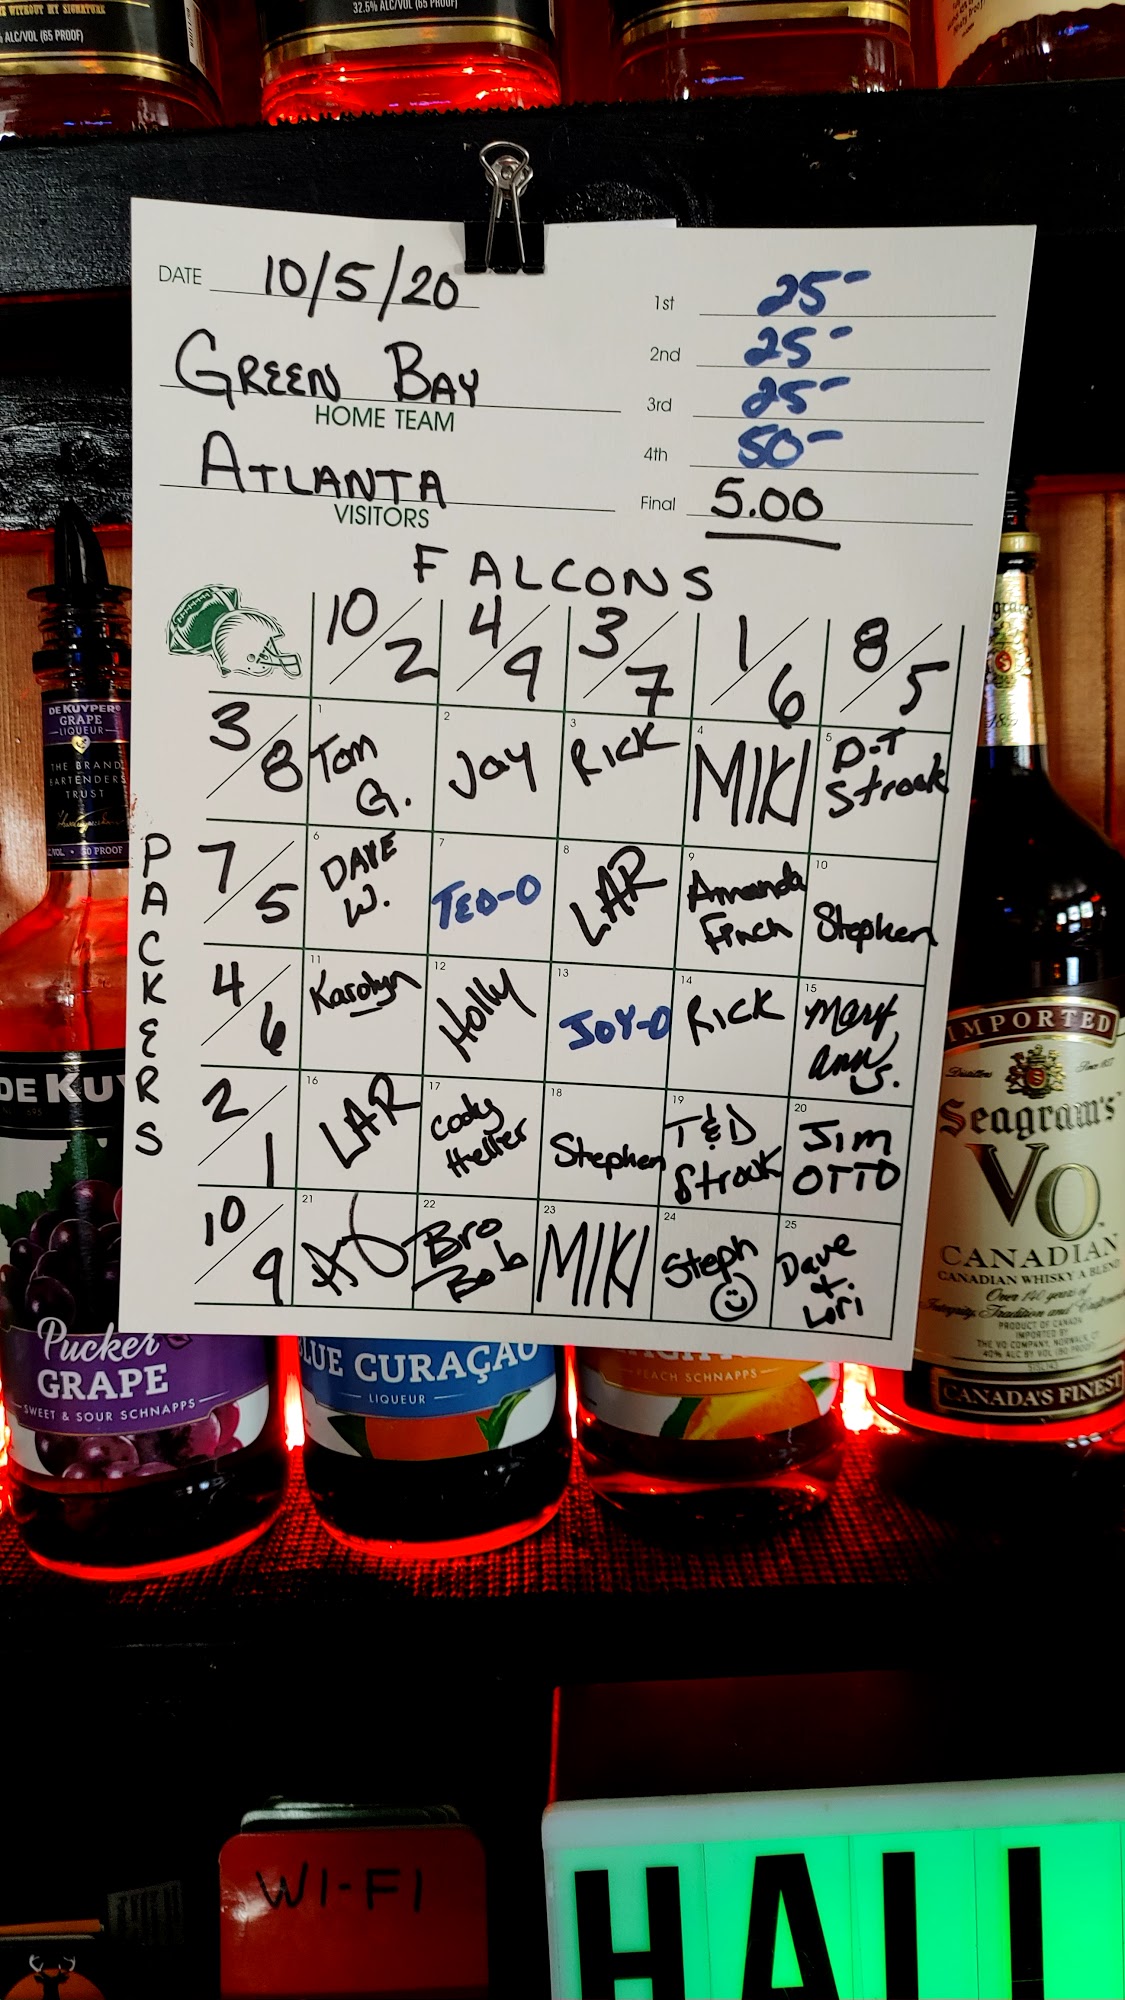 E WITHOUT MY SIGNATURE
% ALC/VOL (65 PROOF)
32.5% ALC/VOL (65 PROOF)
DATE 10/5/20
1st 25-
GREEN BAY
2nd 25-
HOME TEAM
3rd 25-
ATLANTA
4th 50-
VISITORS
Final 5.00
FALCONS
10/2 4/9 3/7 1/6 8/5
PACKERS
3/8
1 Tom G.
2 Jay
3 RICK
4 MIKI
5 D-T Stroak
7/5
6 DAVE W.
7 TED-O
8 LAR
9 Amanda Finch
10 Stephen
4/6
11 Karolyn
12 Holly
13 JOY-O
14 RICK
15 Mary Ann S.
2/1
16 LAR
17 Cody Heller
18 Stephen
19 T&D Stroak
20 JIM OTTO
10/9
21
22 Bro Bob
23 MIKI
24 Steph
25 Dave & Lori
DEKUYPER®
GRAPE
LIQUEUR
THE BRAND
BARTENDERS
TRUST
VOL. • 30 PROOF
DE KUY
Pucker
GRAPE
SWEET & SOUR SCHNAPPS
LUE CURAÇAO
LIQUEUR
PEACH SCHNAPPS
IMPORTED
Seagram's
VO
CANADIAN
CANADIAN WHISKY A BLEND
Over 140 years of
Integrity, Tradition and Craftsmanship
PRODUCT OF CANADA
IMPORTED BY
THE VO COMPANY, NORWALK, CT
40% ALC BY VOL (80 PROOF)
CANADA'S FINEST
WI-FI
HALL